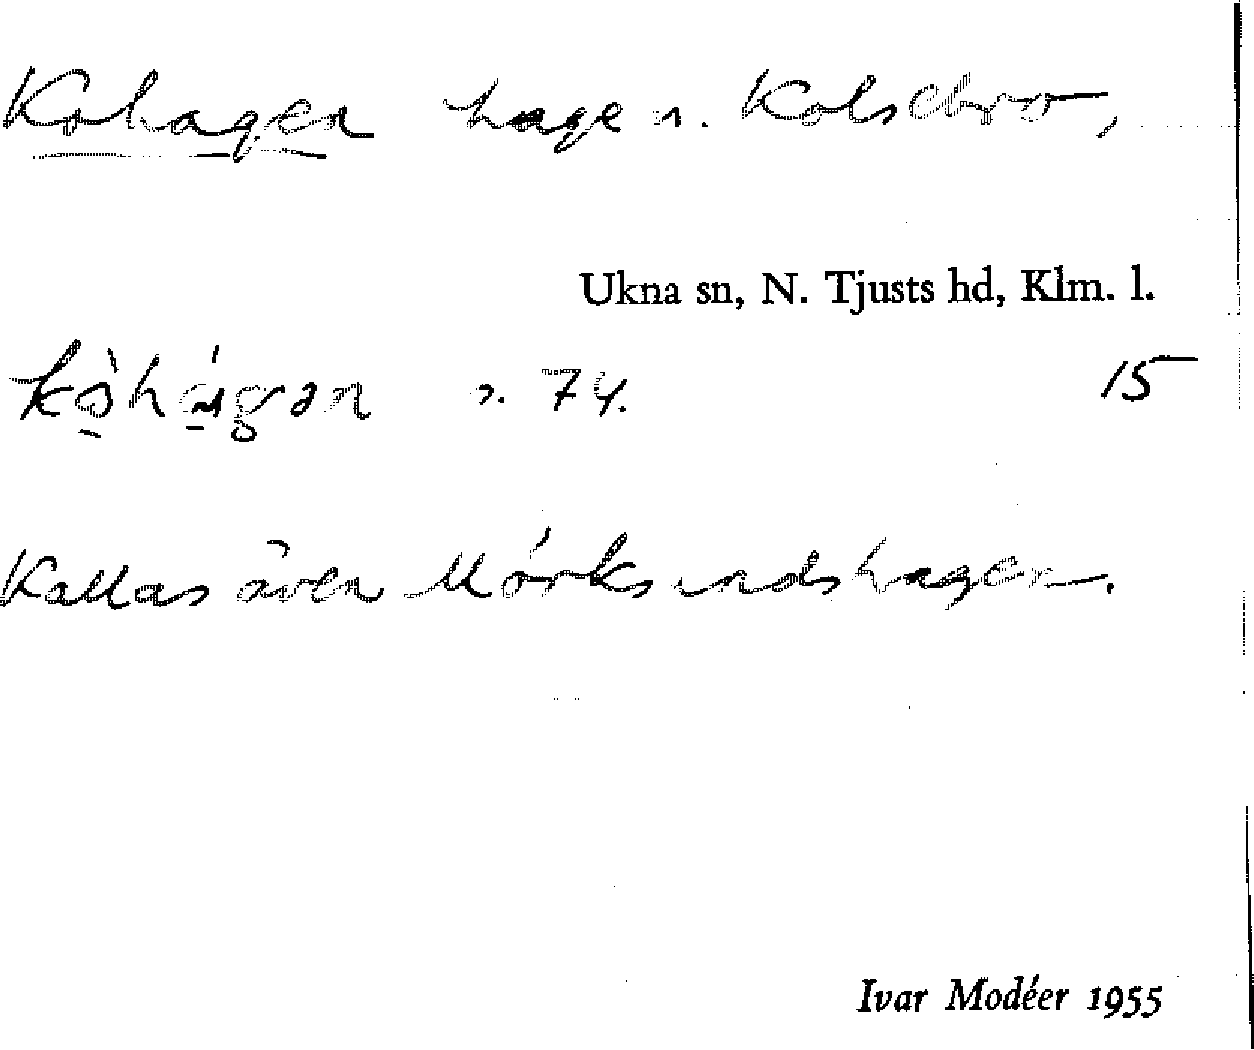 Kohagen hage n. Kolsebro,
Ukna sn, N. Tjusts hd, Klm. l.
15
Kallas även Mörksundshagen.
Ivar Modéer 1955